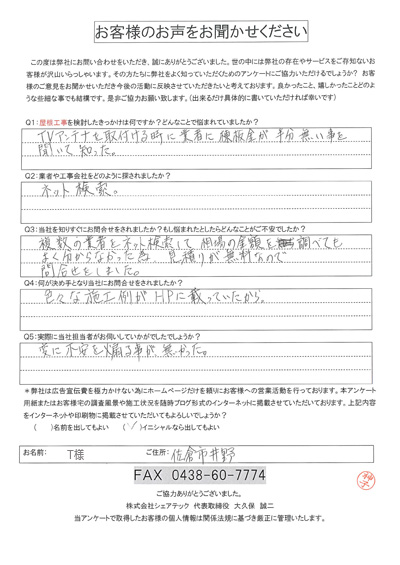 お客様のお声をお聞かせください
この度は弊社にお問い合わせをいただき、誠にありがとうございました。世の中には弊社の存在やサービスをご存知ないお
客様が沢山いらっしゃいます。その方たちに弊社をよく知っていただくためのアンケートにご協力いただけるでしょうか? お客
様のご意見をお聞かせいただき今後の活動に反映させていただきたいと考えております。良かったこと、嬉しかったことどのよ
うな些細な事でも結構です。是非ご協力お願い致します。(出来るだけ具体的に書いていただければ幸いです)
Q1:屋根工事を検討したきっかけは何ですか?どんなことで悩まれていましたか?
TVアンテナを取付ける時に業者に棟板金が半分無い事を
聞いて知った。
Q2:業者や工事会社をどのように探されましたか?
ネット検索。
Q3:当社を知りすぐにお問合せをされましたか?もし悩まれたとしたらどんなことがご不安でしたか?
複数の業者をネット検索して相場の金額を調べても
よく分からなかった為、見積りが無料なので
問合せをしました。
Q4:何が決め手となり当社にお問合せをされましたか?
色々な施工例がHPに載っていたから。
Q5:実際に当社担当者がお伺いしていかがでしたでしょうか?
変に不安を煽る事が無かった。
*弊社は広告宣伝費を極力かけない為にホームページだけを頼りにお客様への営業活動を行っております。本アンケート
用紙またはお客様宅の調査風景や施工状況を随時ブログ形式のインターネットに掲載させていただいております。上記内容
をインターネットや印刷物に掲載させていただいてもよろしいでしょうか?
( )名前を出してもよい (✓)イニシャルなら出してもよい
お名前: T様 ご住所: 佐倉市井野
FAX 0438-60-7774
ご協力ありがとうございました。
株式会社シェアテック 代表取締役 大久保 誠二
当アンケートで取得したお客様の個人情報は関係法規に基づき厳正に管理いたします。